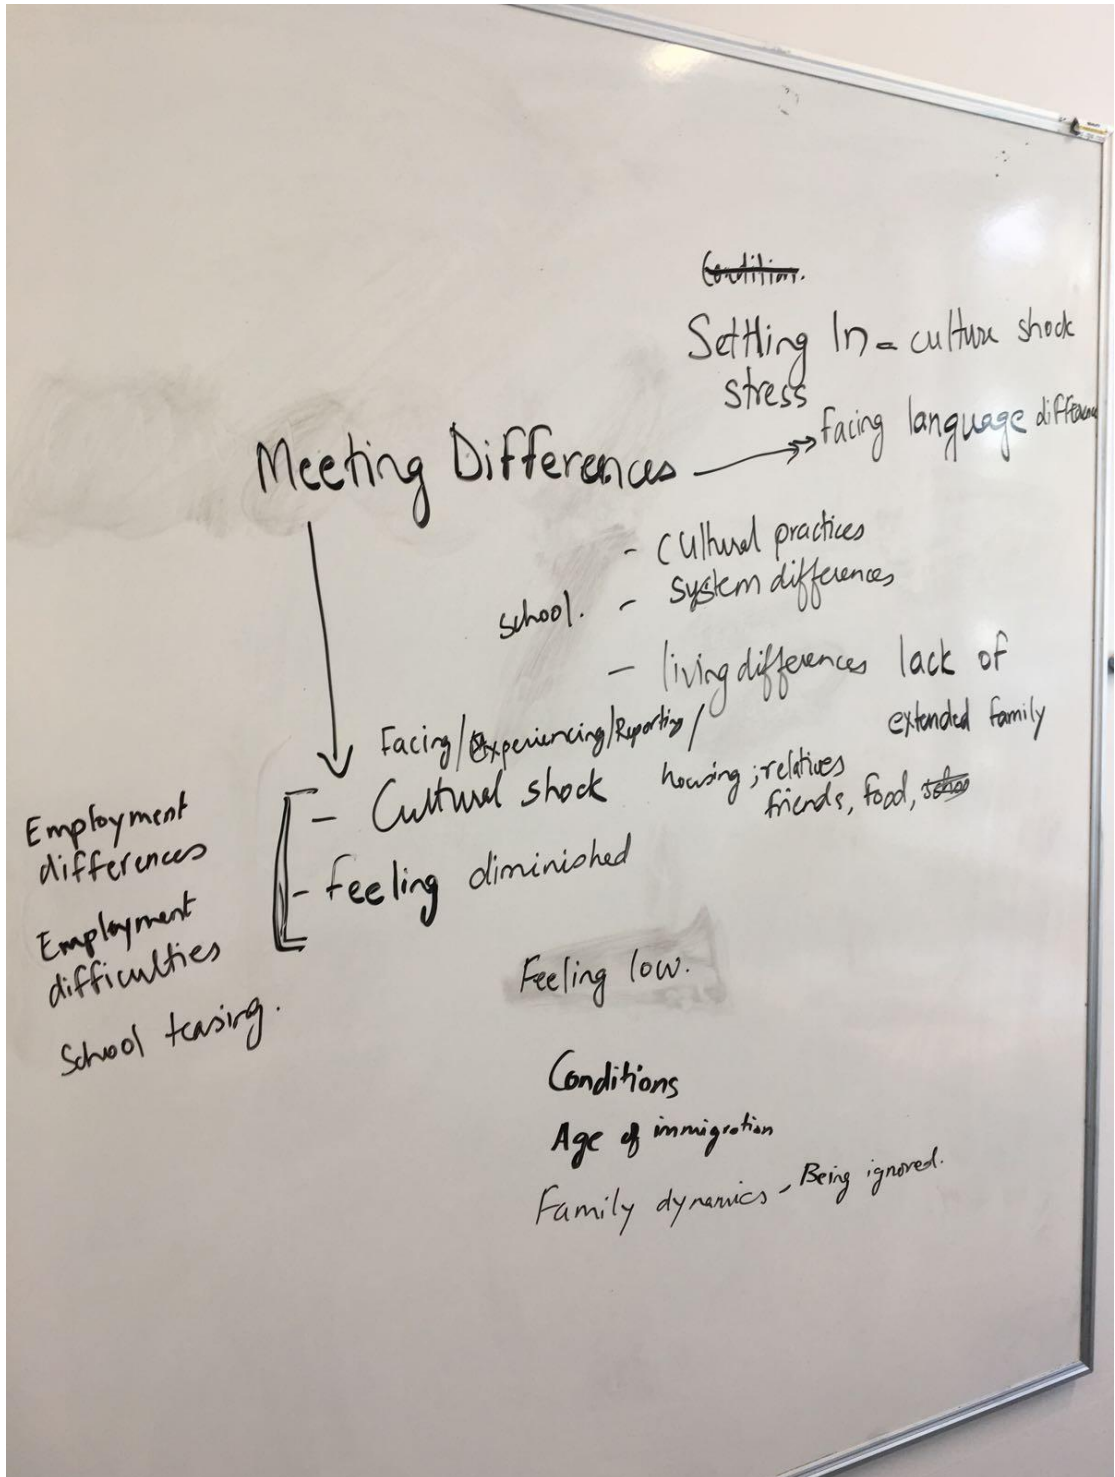 Condition.
Settling In = culture shock
stress
Meeting Differences
facing language differences
- Cultural practices
school. - system differences
- living differences lack of
extended family
housing; relatives
friends, food,
Facing/Experiencing/Reporting/
- Cultural shock
- Feeling diminished
Employment
differences
Employment
difficulties
School teasing.
Feeling low.
Conditions
Age of immigration
Family dynamics - Being ignored.